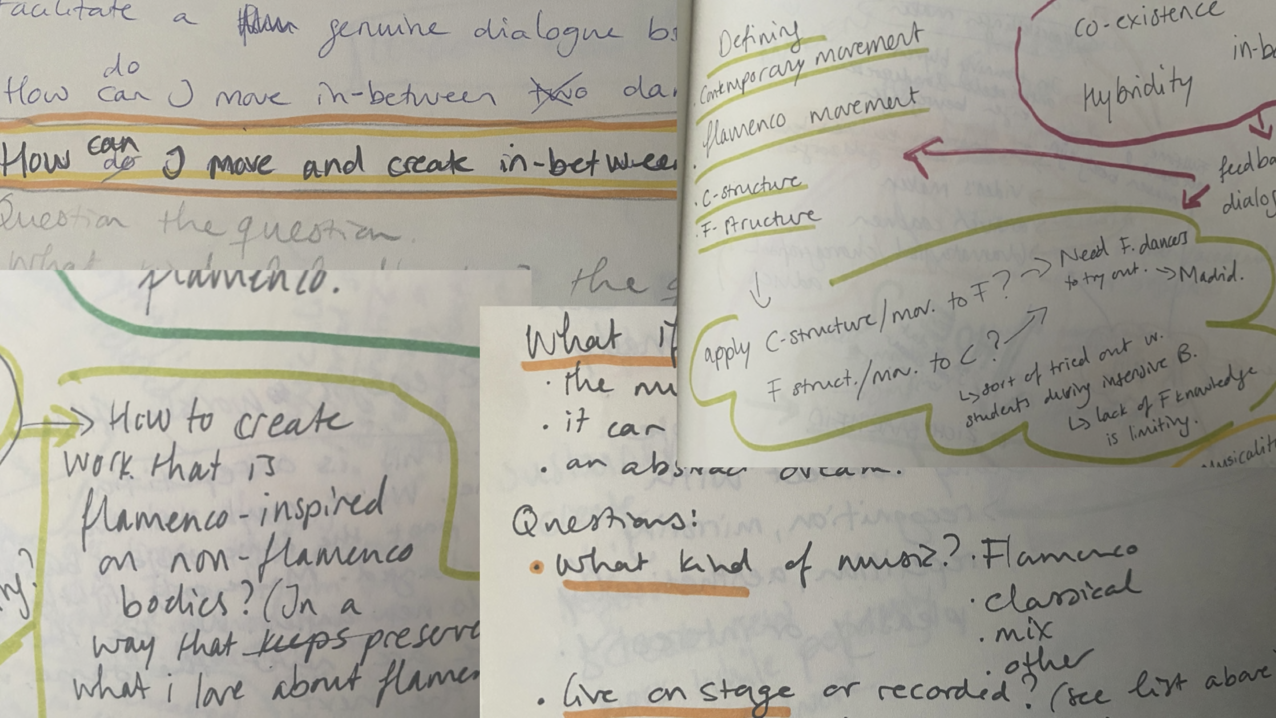 Facilitate a genuine dialogue
do
How can I move in-between two
How can do I move and create in-between
Question the question.
What the
flamenco.
→ How to create
work that is
flamenco-inspired
on non-flamenco
bodies? (In a
way that keeps preserve
what i love about
What if
· the
· it can
· an abstract
Questions:
• What kind of music? · Flamenco
· classical
· mix
· other
· live on stage or recorded? (see list above
Defining
Contemporary movement
· flamenco movement
· C-structure
· F-structure
co-existence
Hybridity
↓
apply C-structure/mov. to F? → Need F. dancers
to try out. → Madrid.
F struct./mov. to C?
↳ sort of tried out w.
students during intensive B.
↳ lack of F knowledge
is limiting.